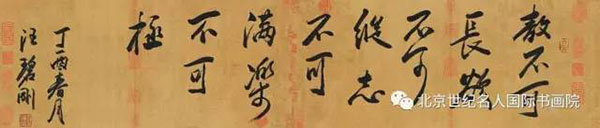 敖不可
長欲
不可
縱志
不可
滿樂
不可
極
丁酉春月
汪碧剛
北京世纪名人国际书画院